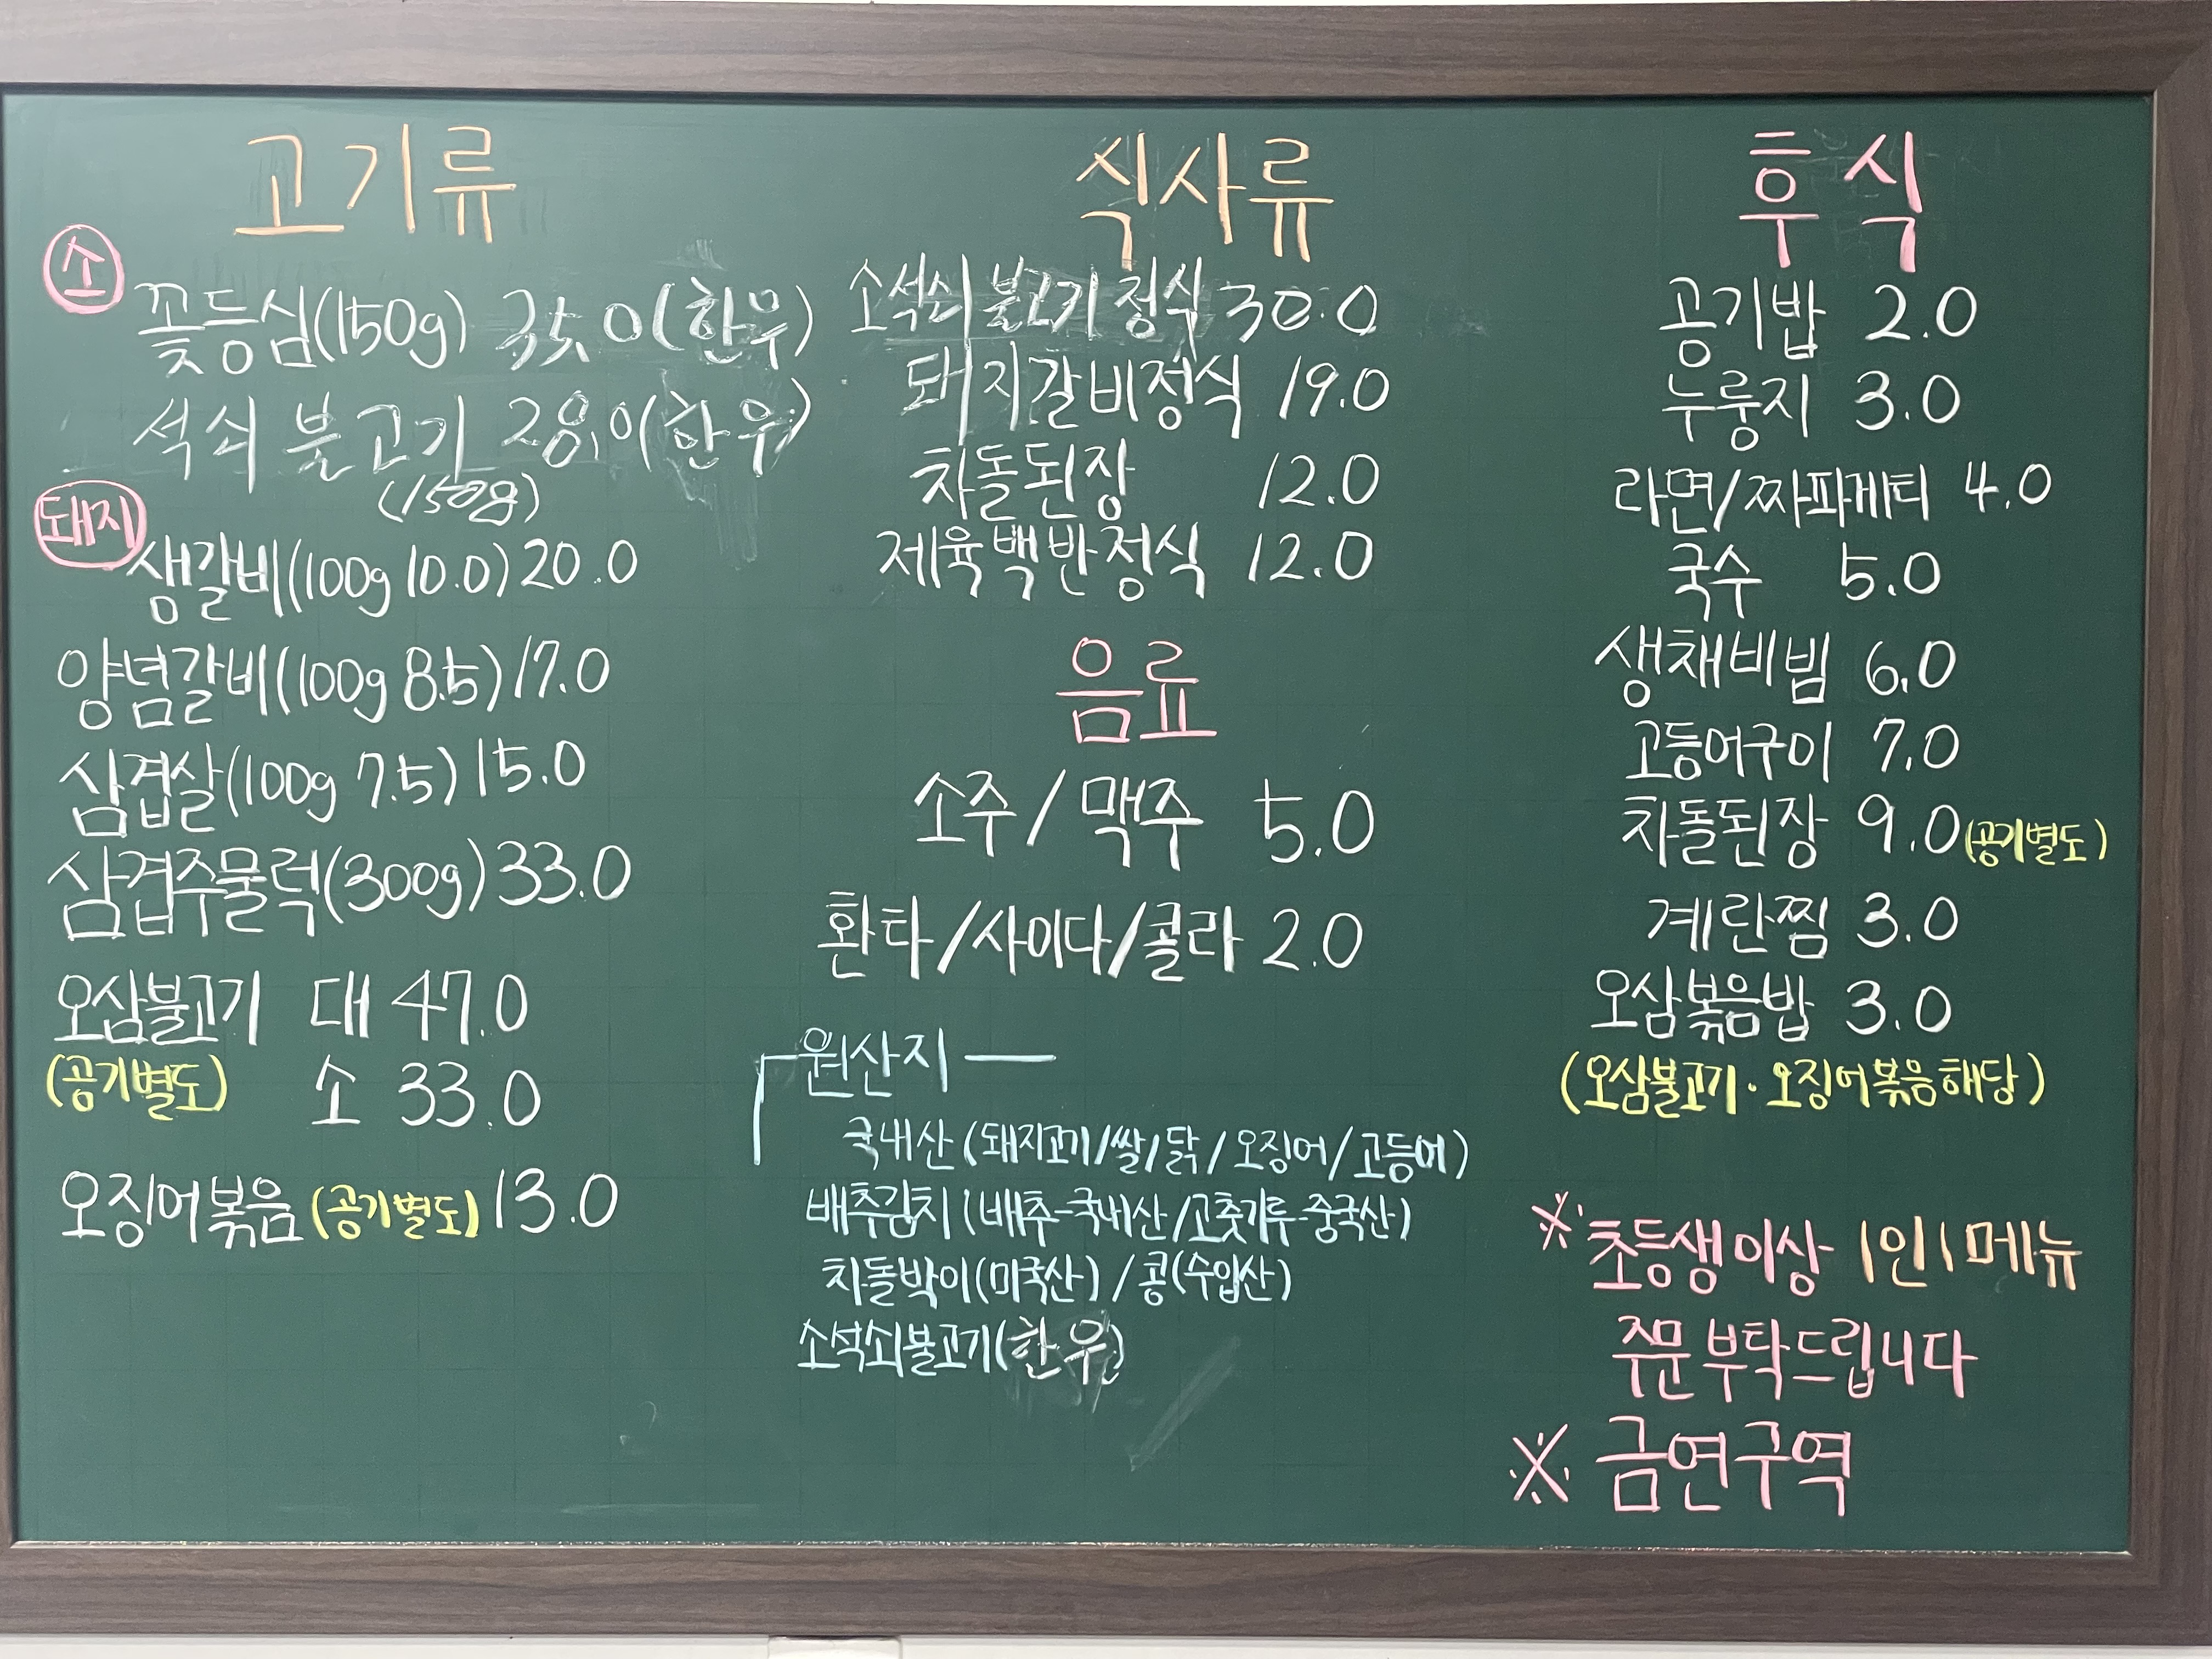 고기류
소
꽃등심(150g) 35.0(한우)
석쇠 불고기 28.0(한우)
(150g)
돼지
생갈비(100g 10.0)20.0
양념갈비(100g 8.5)17.0
삼겹살(100g 7.5)15.0
삼겹주물럭(300g)33.0
오삼불고기 대 47.0
(공기별도) 소 33.0
오징어볶음(공기별도)13.0
식사류
소석쇠불고기정식 30.0
돼지갈비정식 19.0
차돌된장 12.0
제육백반정식 12.0
음료
소주/맥주 5.0
환타/사이다/콜라 2.0
원산지
국내산(돼지고기/쌀/닭/오징어/고등어)
배추김치(배추-국내산/고춧가루-중국산)
차돌박이(미국산)/콩(수입산)
소석쇠불고기(한우)
후식
공기밥 2.0
누룽지 3.0
라면/짜파게티 4.0
국수 5.0
생채비빔 6.0
고등어구이 7.0
차돌된장 9.0(공기별도)
계란찜 3.0
오삼볶음밥 3.0
(오삼불고기·오징어볶음해당)
※초등생이상 1인1메뉴
주문부탁드립니다
※ 금연구역